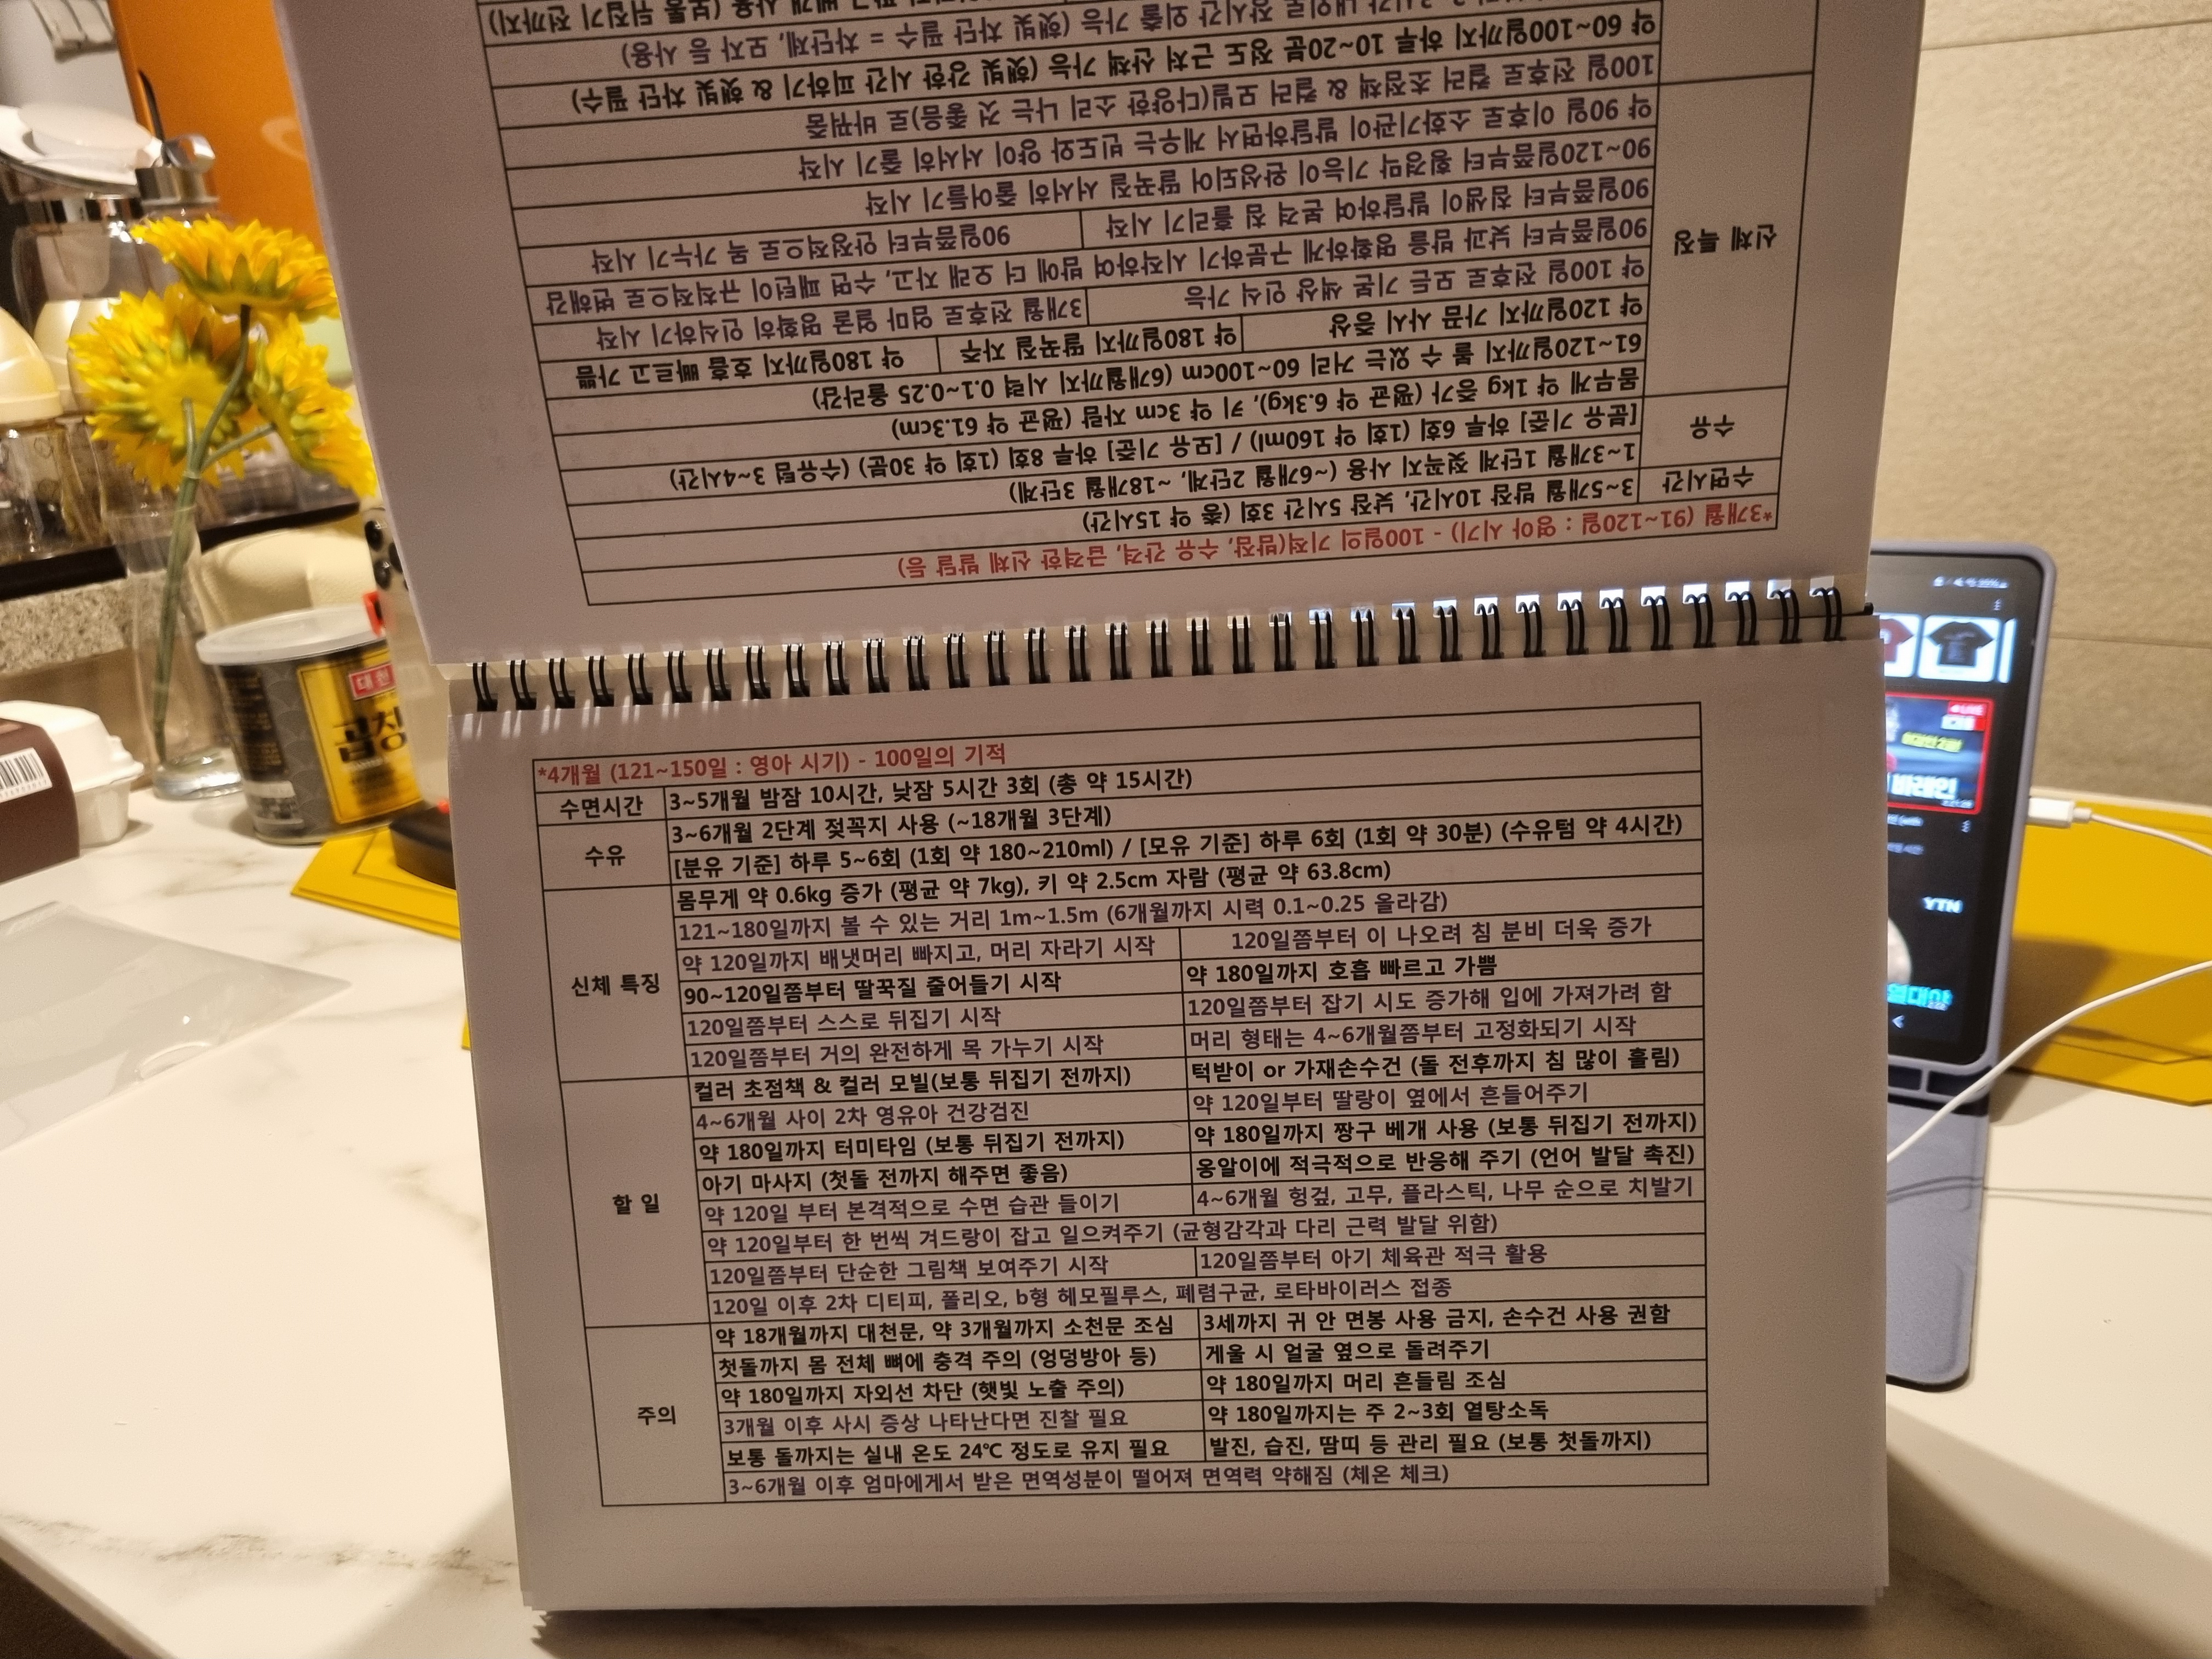 *4개월 (121~150일 : 영아 시기) - 100일의 기적
수면시간
3~5개월 밤잠 10시간, 낮잠 5시간 3회 (총 약 15시간)
수유
3~6개월 2단계 젖꼭지 사용 (~18개월 3단계)
[분유 기준] 하루 5~6회 (1회 약 180~210ml) / [모유 기준] 하루 6회 (1회 약 30분) (수유텀 약 4시간)
신체 특징
몸무게 약 0.6kg 증가 (평균 약 7kg), 키 약 2.5cm 자람 (평균 약 63.8cm)
121~180일까지 볼 수 있는 거리 1m~1.5m (6개월까지 시력 0.1~0.25 올라감)
약 120일까지 배냇머리 빠지고, 머리 자라기 시작
120일쯤부터 이 나오려 침 분비 더욱 증가
90~120일쯤부터 딸꾹질 줄어들기 시작
약 180일까지 호흡 빠르고 가쁨
120일쯤부터 스스로 뒤집기 시작
120일쯤부터 잡기 시도 증가해 입에 가져가려 함
120일쯤부터 거의 완전하게 목 가누기 시작
머리 형태는 4~6개월쯤부터 고정화되기 시작
할 일
컬러 초점책 & 컬러 모빌(보통 뒤집기 전까지)
턱받이 or 가재손수건 (돌 전후까지 침 많이 흘림)
4~6개월 사이 2차 영유아 건강검진
약 120일부터 딸랑이 옆에서 흔들어주기
약 180일까지 터미타임 (보통 뒤집기 전까지)
약 180일까지 짱구 베개 사용 (보통 뒤집기 전까지)
아기 마사지 (첫돌 전까지 해주면 좋음)
옹알이에 적극적으로 반응해 주기 (언어 발달 촉진)
약 120일 부터 본격적으로 수면 습관 들이기
4~6개월 헝겊, 고무, 플라스틱, 나무 순으로 치발기
약 120일부터 한 번씩 겨드랑이 잡고 일으켜주기 (균형감각과 다리 근력 발달 위함)
120일쯤부터 단순한 그림책 보여주기 시작
120일쯤부터 아기 체육관 적극 활용
120일 이후 2차 디티피, 폴리오, b형 헤모필루스, 폐렴구균, 로타바이러스 접종
주의
약 18개월까지 대천문, 약 3개월까지 소천문 조심
3세까지 귀 안 면봉 사용 금지, 손수건 사용 권함
첫돌까지 몸 전체 뼈에 충격 주의 (엉덩방아 등)
게울 시 얼굴 옆으로 돌려주기
약 180일까지 자외선 차단 (햇빛 노출 주의)
약 180일까지 머리 흔들림 조심
3개월 이후 사시 증상 나타난다면 진찰 필요
약 180일까지는 주 2~3회 열탕소독
보통 돌까지는 실내 온도 24℃ 정도로 유지 필요
발진, 습진, 땀띠 등 관리 필요 (보통 첫돌까지)
3~6개월 이후 엄마에게서 받은 면역성분이 떨어져 면역력 약해짐 (체온 체크)
*3개월 (91~120일 : 영아 시기) - 100일의 기적(밤잠, 수유 간격, 급격한 신체 발달 등)
수면시간
3~5개월 밤잠 10시간, 낮잠 5시간 3회 (총 약 15시간)
수유
1~3개월 1단계 젖꼭지 사용 (~6개월 2단계, ~18개월 3단계)
[분유 기준] 하루 6회 (1회 약 160ml) / [모유 기준] 하루 8회 (1회 약 30분) (수유텀 3~4시간)
신체 특징
몸무게 약 1kg 증가 (평균 약 6.3kg), 키 약 3cm 자람 (평균 약 61.3cm)
61~120일까지 볼 수 있는 거리 60~100cm (6개월까지 시력 0.1~0.25 올라감)
약 120일까지 가끔 사시 증상
약 180일까지 딸꾹질 자주
약 180일까지 호흡 빠르고 가쁨
약 100일 전후로 모든 기본 색상 인식 가능
3개월 전후로 엄마 얼굴 명확히 인식하기 시작
90일쯤부터 낮과 밤을 명확하게 구분하기 시작하여 밤에 더 오래 자고, 수면 패턴이 규칙적으로 변해감
90일쯤부터 침샘이 발달하여 본격 침 흘리기 시작
90일쯤부터 안정적으로 목 가누기 시작
90~120일쯤부터 횡경막 기능이 완성되어 딸꾹질 서서히 줄어들기 시작
약 90일 이후로 소화기관이 발달하면서 게우는 빈도와 양이 서서히 줄기 시작
100일 전후로 컬러 초점책 & 컬러 모빌(다양한 소리 나는 것 좋음)로 바꿔줌
약 60~100일까지 하루 10~20분 정도 근처 산책 가능 (햇빛 강한 시간 피하기 & 햇빛 차단 필수)
시간 내외로 장시간 외출 가능 (햇빛 차단 필수 = 차단제, 모자 등 사용)
베개 사용 (보통 뒤집기 전까지)
대천
곱창
LIVE
바레인
YTN